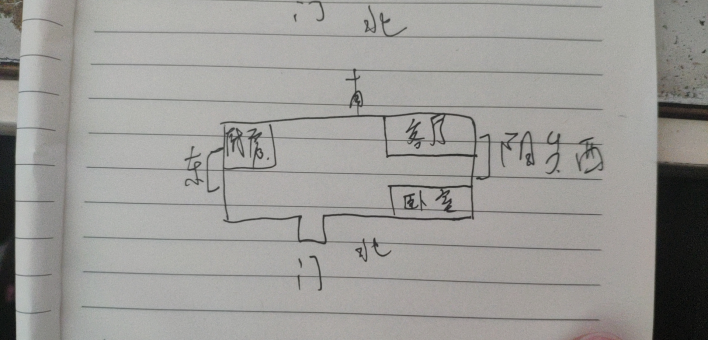 门 北
南
客厅
东 阳台 西
卧室
北
门